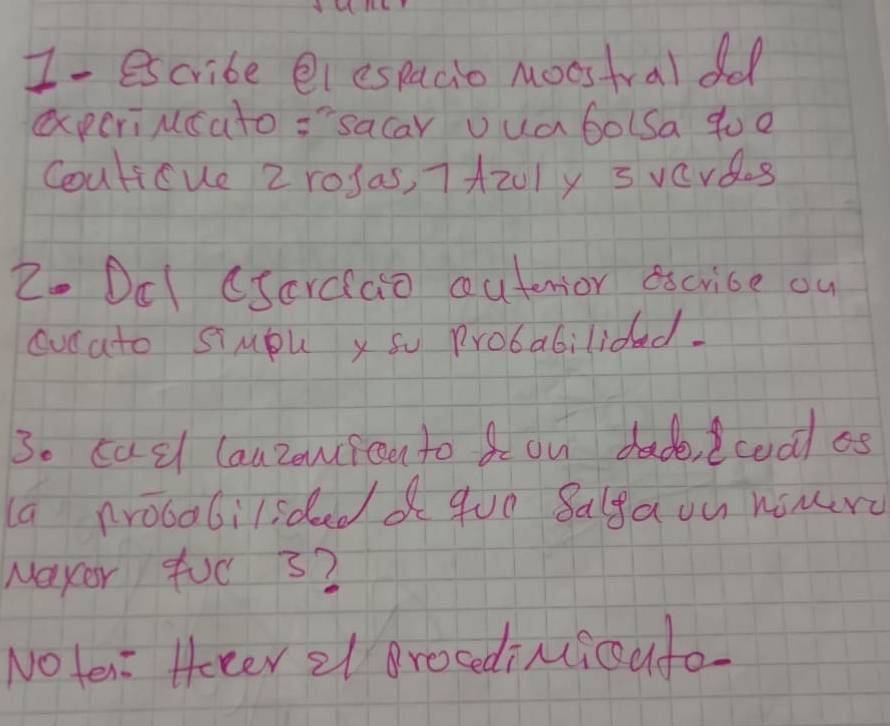 1- Escribe el espacio moestral del
experimento = "sacar una bolsa que
contiene 2 rojas, 1 Azul y 3 verdes
2- Del ejercicio anterior escribe un
evento simple y su probabilidad.
3. En el lanzamiento de un dado, ¿cuál es
la probabilidad de que salga un número
mayor que 3?
Nota: Hacer el procedimiento-